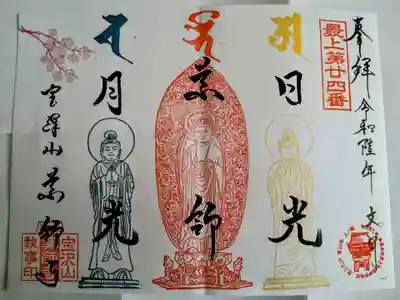 奉拝 令和陸年 文月
最上第廿四番
日光
薬師
月光
宝澤山薬師寺
宝沢山
執事印